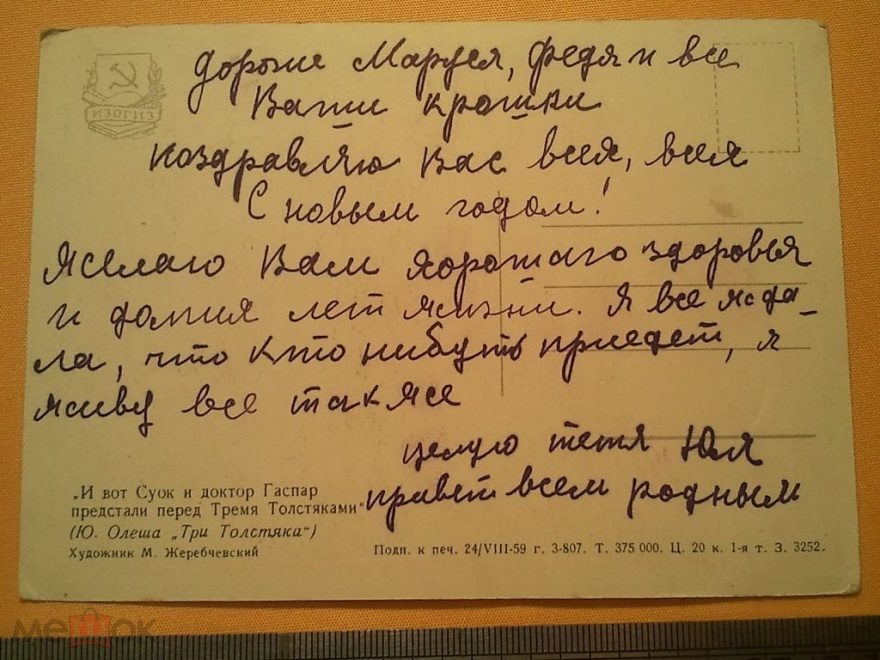 ИЗОГИЗ
дорогие Маруся, Федя и все
Ваши крошки
поздравляю Вас всех, всех
С новым годом!
Желаю Вам хорошаго здоровья
и долгих лет жизни. Я все жда-
ла, что кто нибудь приедет, я
живу все так же
целую тетя Юля
привет всем родным
„И вот Суок и доктор Гаспар
предстали перед Тремя Толстяками“
(Ю. Олеша „Три Толстяка“)
Художник М. Жеребчевский
Подп. к печ. 24/VIII-59 г. З-807. Т. 375 000. Ц. 20 к. 1-я т. З. 3252.
мешок